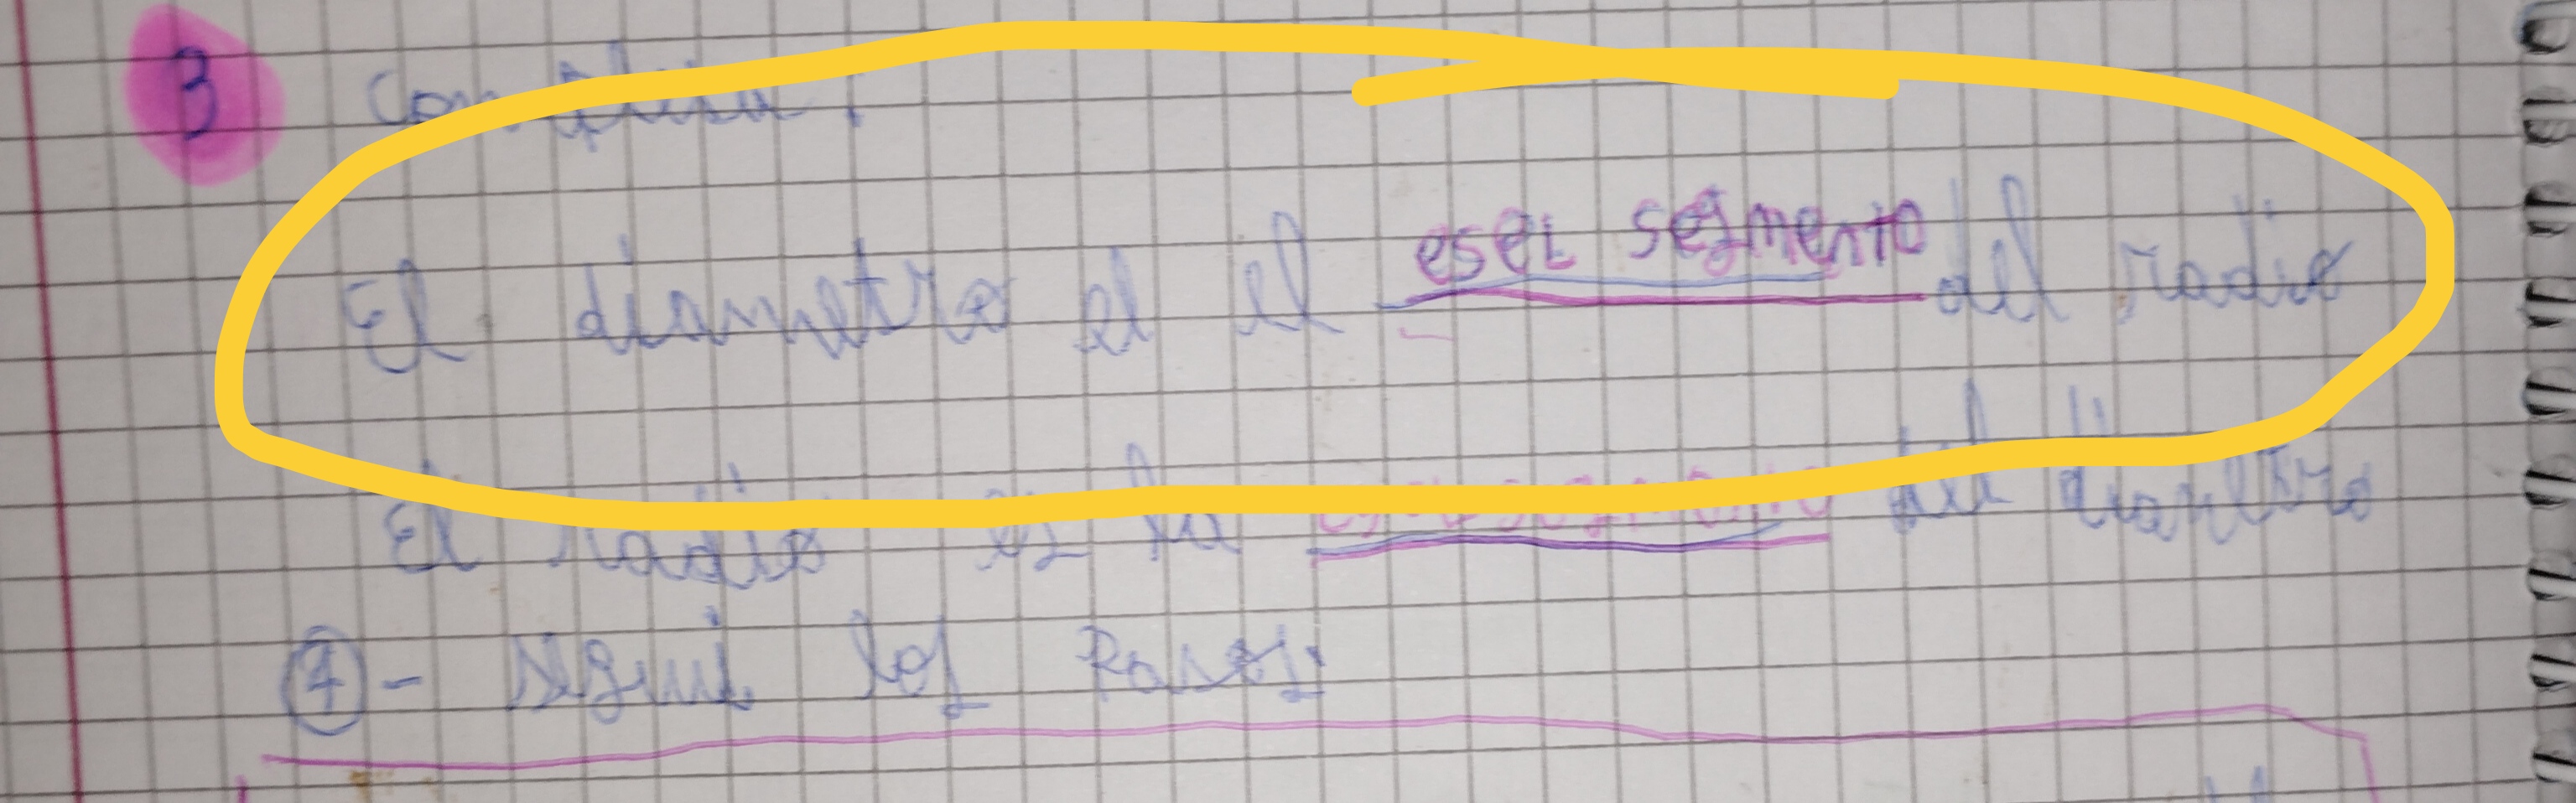 3 Completa:
El diametro el el esel segmento del radio
El radio es la del diametro
4- Segui los Pasos: